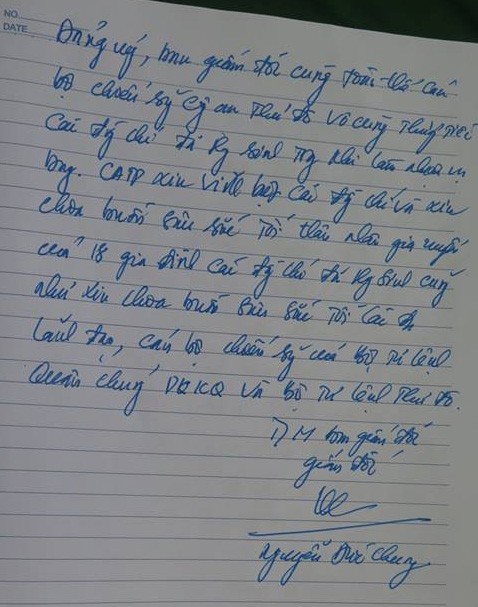 NO.
DATE
Đảng uỷ, ban giám đốc cùng toàn thể cán
bộ chiến sỹ CA thủ đô vô cùng thương tiếc
Các đ/c chí đã hy sinh trg khi làm nhiệm vụ
bay. CATP xin vĩnh biệt các đ/c chí và xin
chia buồn sâu sắc tới thân nhân gia quyến
của 18 gia đình các đ/c chí đã hy sinh cũng
như xin chia buồn sâu sắc tới các đ/c
lãnh đạo, cán bộ chiến sỹ của bộ tư lệnh
Quân chủng PQKQ và bộ tư lệnh thủ đô.
T/M ban giám đốc
giám đốc
Nguyễn Đức Chung